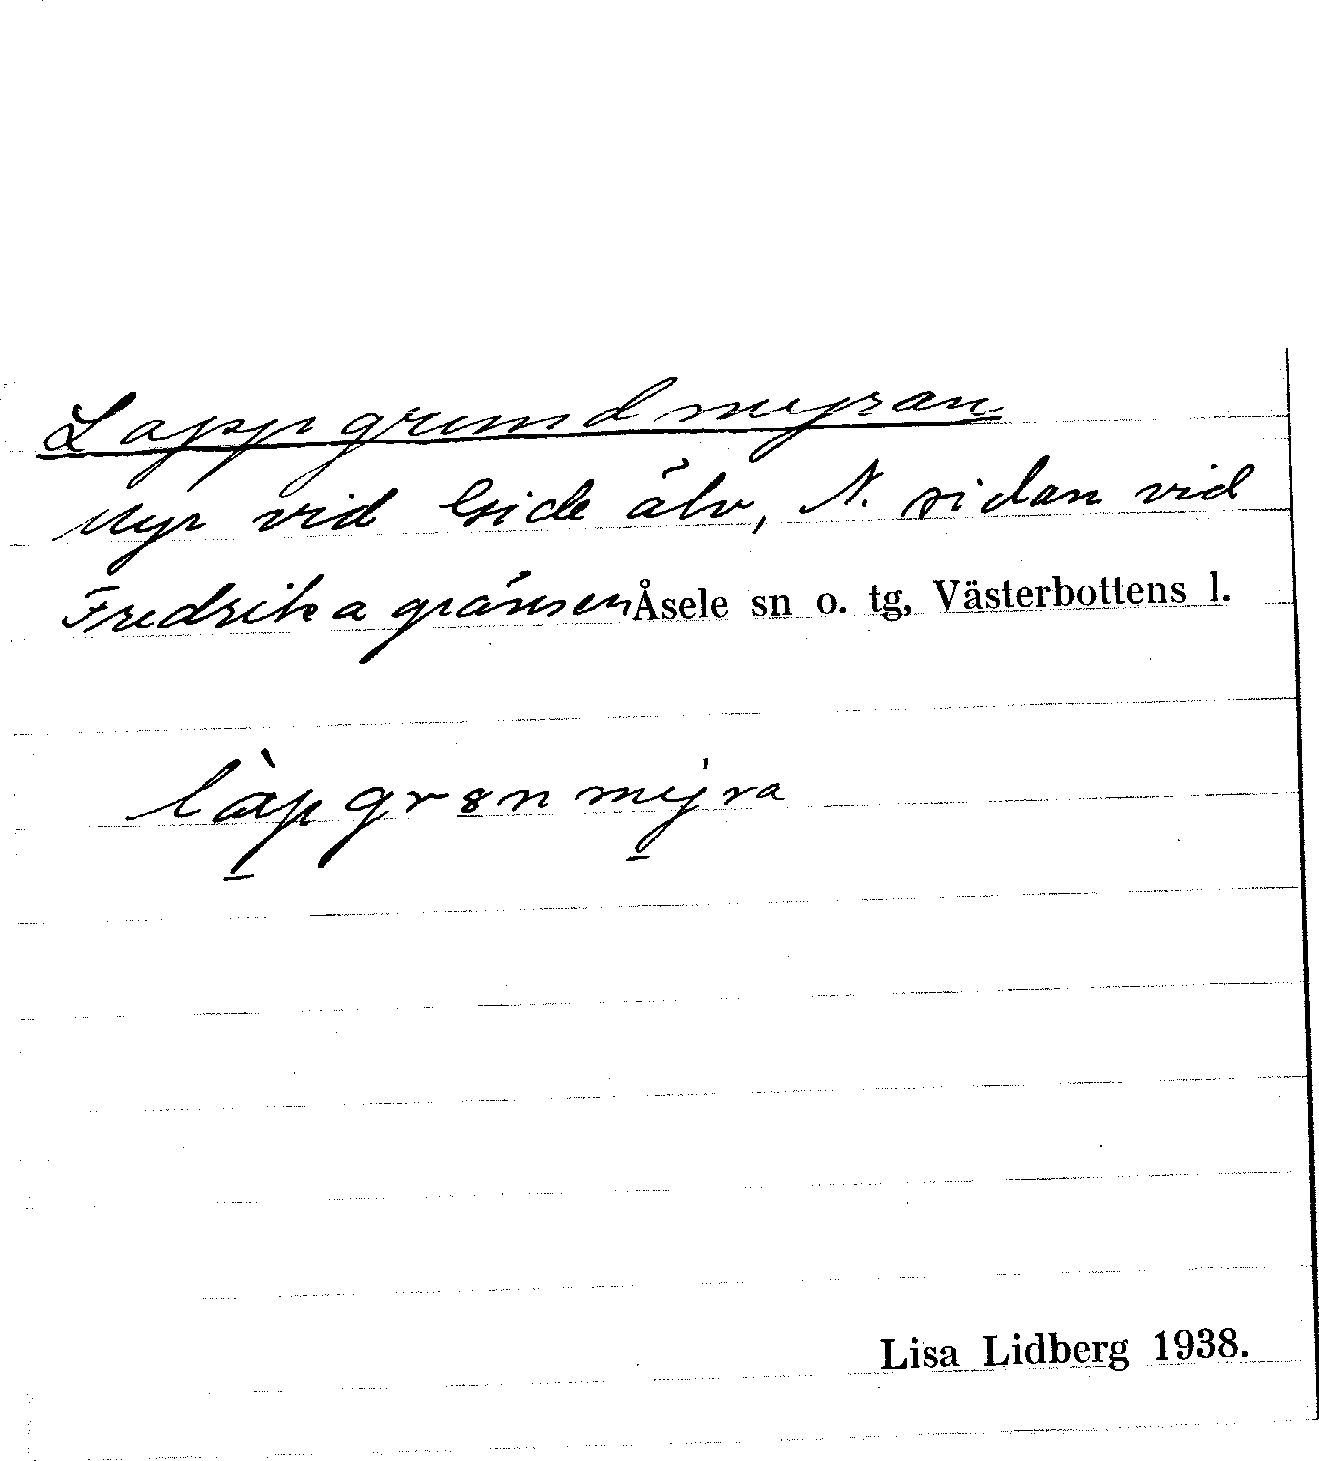 Lappgrundmyran
Myr vid Gide älv, N. sidan vid
Fredrika gränsen Åsele sn o. tg, Västerbottens l.
làp̲gr8nmy̲̍ra
Lisa Lidberg 1938.